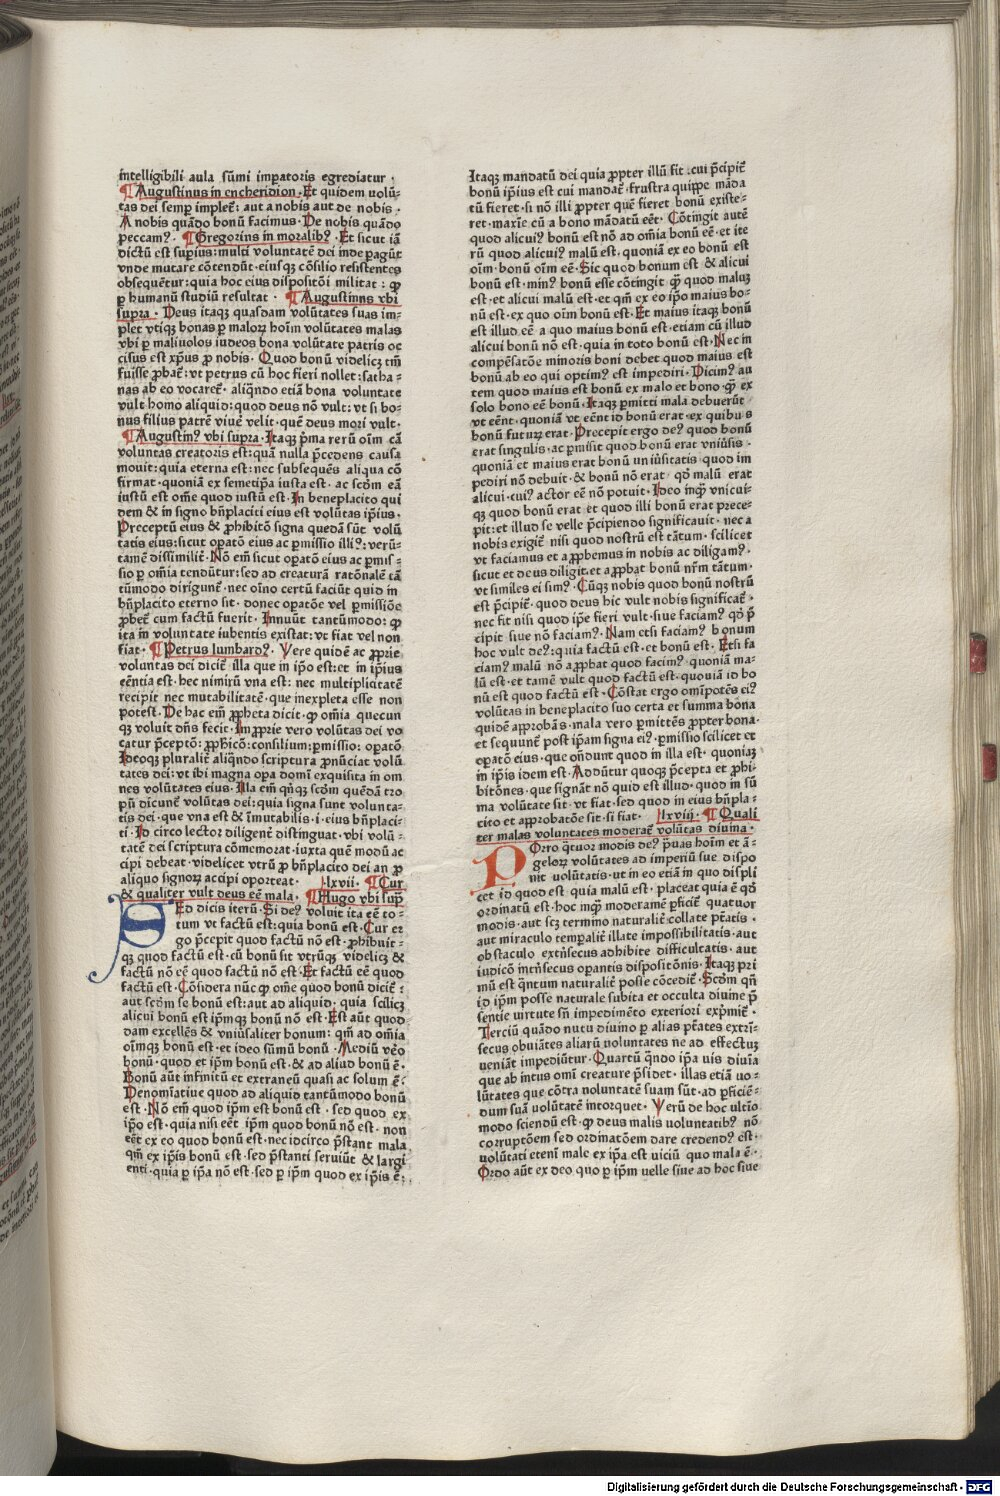 intelligibili aula sūmi imꝑatoris egrediatur ·
¶ Augustinus in encheridion · Et quidem volū-
tas dei semꝑ impleƭ: aut a nobis aut de nobis ·
A nobis quādo bonū facimus · De nobis quādo
peccam⁹ · ¶ Gregorius in moralib⁹ · Et sicut iā
dictū est suꝑius: multi voluntatē dei inde ꝑagūt
vnde mutare cōtendūt · eiusqꝫ cōsilio resistentes
obsequētur: quia hoc eius dispositōi militat : ꝙ
ꝑ humanū studiū resultat · ¶ Augustinus vbi
supra · Deus itaqꝫ quasdam volūtates suas im-
plet vtiqꝫ bonas ꝑ maloꝝ hoīm volūtates malas
vbi ꝑ maliuolos iudeos bona volūtate patris oc
cisus est xp̄us ꝓ nobis · Quod bonū videlicꝫ tm̄
fuisse ꝓbaƭ: vt petrus cū hoc fieri nollet: satha-
nas ab eo vocareƭ · aliqn̄do etiā bona voluntate
vult homo aliquid: quod deus nō vult: vt si bo-
nus filius patrē viuē velit · quē deus mori vult ·
¶ Augustin⁹ vbi supra · Itaqꝫ p̄ma rerū oīm cā
voluntas creatoris est: quā nulla p̄cedens causa
mouit: quia eterna est: nec subsequēs aliqua cō
firmat · quoniā ex semetip̄a iusta est · ac scd̄m eā
iustū est om̄e quod iustū est · In beneplacito qui
dem & in signo bn̄placiti eius est volūtas ip̄ius ·
Preceptū eius & ꝓhibitō signa quedā sūt volū
tatis eius: sicut oꝑatō eius ac ꝑmissio illi⁹: verū-
tamē dissimiliƭ · Nō em̄ sicut oꝑatō eius ac ꝑmis-
sio ꝑ om̄ia tendūtur: sed ad creaturā ratōnalē tā
tūmodo dirigunƭ · nec oīno certū faciūt quid in
bn̄placito eterno sit · donec oꝑatōe vel ꝑmissiōe
ꝓbeƭ cum factū fuerit · Innuūt tantūmodo: ꝙ
ita in voluntate iubentis existat: vt fiat vel non
fiat · ¶ Petrus lumbard⁹ · Vere quidē ac ꝓprie
voluntas dei diciƭ illa que in ip̄o est: et in ip̄ius
eēntia est · hec nimiꝝ vna est: nec multiplicitatē
recipit nec mutabilitatē · que inexpleta esse non
potest · De hac em̄ ꝓpheta dicit · ꝙ om̄ia quecun
qꝫ voluit dn̄s fecit · Imꝓprie vero volūtas dei vo
catur p̄ceptō: ꝓhibicō: consilium: ꝑmissio: oꝑatō
Ideoqꝫ pluraliƭ aliqn̄do scriptura ꝓnūciat volū
tates dei: vt ibi magna oꝑa domī exquisita in om
nes volūtates eius · Illa em̄ qn̄qꝫ scd̄m quēdā tro
pū dicunƭ volūtas dei: quia signa sunt volunta-
tis dei · que vna est & īmutabilis · i · eius bn̄placi-
ti · Id circo lector diligenƭ distinguat · vbi volū-
tatē dei scriptura cōmemorat · iuxta quē modū ac
cipi debeat · videlicet vtrū ꝓ bn̄placito dei an ꝓ
aliquo signoꝝ accipi oporteat · lxvii · ¶ Cur
& qualiter vult deus eē mala · ¶ Hugo vbi sup̄
SEd dicis iterū · Si de⁹ voluit ita eē to-
tum vt factū est: quia bonū est · Cur er
go p̄cepit quod factū nō est · ꝓhibuit-
qꝫ quod factū est · cū bonū sit vtrūqꝫ · videlicꝫ &
factū nō eē quod factū nō est · Et factū eē quod
factū est · Cōsidera nūc ꝙ om̄e quod bonū diciƭ :
aut scd̄m se bonū est: aut ad aliquid · quia scilicꝫ
alicui bonū est ip̄mqꝫ bonū nō est · Est aūt quod
dam excellēs & vniuīsaliter bonum: qm̄ ad om̄ia
oīmqꝫ bonū est · et ideo sūmū bonū · Mediū ve͛o
bonū · quod et ip̄m bonū est · & ad aliud bonū ē ·
Bonū aūt infinitū et extraneū quasi ac solum ē ·
Denomīatiue quod ad aliquid tantūmodo bonū
est · Nō em̄ quod ip̄m est bonū est · sed quod ex
ip̄o est · quia nisi eēt ip̄m quod bonū nō est · non
eēt ex eo quod bonū est · nec idcirco p̄stant mala
qm̄ ex ip̄is bonū est · sed p̄stanti seruiūt & largi
enti · quia ꝑ ip̄a nō est · sed ꝑ ip̄m quod ex ip̄is ē :
Itaqꝫ mandatū dei quia ꝓpter illū fit · cui p̄cipiƭ
bonū ip̄ius est cui mandaƭ · frustra quippe māda
tū fieret · si nō illi ꝓpter quē fieret bonū existe-
ret · maxīe cū a bono mādatū eēt · Cōtingit autē
quod alicui⁹ bonū est nō ad om̄ia bonū eē · et ite
rū quod alicui⁹ malū est · quoniā ex eo bonū est
oīm · bonū oīm eē · Sic quod bonum est & alicui
bonū est · min⁹ bonū esse cōtingit ꝙ̄ quod maluꝫ
est · et alicui malū est · et qm̄ ex eo ip̄o maius bo-
nū est · ex quo oīm bonū est · Et maius itaqꝫ bonū
est illud eē a quo maius bonū est · etiam cū illud
alicui bonū nō est · quia in toto bonū est · Nec in
compēsatōe minoris boni debet quod maius est
bonū ab eo qui optim⁹ est impediri · Dicim⁹ au
tem quod maius est bonū ex malo et bono · ꝙ̄ ex
solo bono eē bonū · Itaqꝫ ꝑmitti mala debuerūt
vt eēnt · quoniā vt eēnt id bonū erat · ex quibus
bonū futuꝝ erat · Precepit ergo de⁹ quod bonū
erat singulis · ac ꝑmisit quod bonū erat vniūsis ·
quoniā et maius erat bonū uniūsitatis · quod im
pediri nō debuit · & bonū nō erat · qd̓ malū erat
alicui · cui⁹ actor eē nō potuit · Ideo inqꝫ vnicui-
qꝫ quod bonū erat et quod illi bonū erat prece-
pit: et illud se velle p̄cipiendo significauit · nec a
nobis exigiƭ nisi quod nostrū est tātum · scilicet
vt faciamus et aꝓbemus in nobis ac diligam⁹ ·
sicut et deus diligit · et aꝓbat bonū nr̄m tātum ·
vt similes ei sim⁹ · Cūqꝫ nobis quod bonū nostrū
est p̄cipiƭ · quod deus hic vult nobis significaƭ ·
nec fit nisi quod ip̄e fieri vult · siue faciam⁹ qd̓ p̄
cipit siue nō faciam⁹ · Nam etsi faciam⁹ bonum
hoc vult de⁹: quia factū est · et bonū est · Etsi fa
ciam⁹ malū nō aꝓbat quod facim⁹ · quoniā ma-
lū est · et tamē vult quod factū est · quoniā id bo
nū est quod factū est · Cōstat ergo omīpotēs ei⁹
volūtas in beneplacito suo certa et summa bona
quidē approbās · mala vero ꝑmittēs ꝓpter bona ·
et sequunƭ post ip̄am signa ei⁹ · ꝑmissio scilicet et
oꝑatō eius · que on̄dunt quod in illa est · quoniaꝫ
in ip̄is idem est · Addūtur quoqꝫ p̄cepta et ꝓhi
bitōnes · que signāt nō quid est illud · quod in sū
ma volūtate sit · vt fiat · sed quod in eius bn̄pla-
cito et approbatōe sit · si fiat · lxviii · ¶ Quali
ter malas voluntates moderaƭ volūtas diuina ·
POrro q̄tuor modis de⁹ p̄uas hoīm et ā-
geloꝝ volūtates ad imperiū sue dispo
nit volūtatis · ut in eo etiā in quo displi
cet id quod est · quia malū est · placeat quia ē qd̓
ordinatū est · hoc inqꝫ moderamē ꝑficiƭ quatuor
modis · aut scꝫ termino naturaliƭ collate ptātis ·
aut miraculo temꝑaliƭ illate impossibilitatis · aut
obstaculo extn̄secus adhibite difficultatis · aut
iudicō intn̄secus oꝑantis dispositōnis · Itaqꝫ pri
mū est q̄ntum naturaliƭ posse cōcediƭ · Scd̄m qn̄
id ip̄m posse naturale subita et occulta diuine p̄
sentie uirtute sn̄ impedimēto exteriori exp̄miƭ ·
Terciū quādo nutu diuino ꝑ alias ptātes extrī-
secus obuiātes aliarū uoluntates ne ad effectuꝫ
ueniāt impediūtur · Quartū q̄ndo ip̄a uis diuīa
que ab intus omī creature p̄sidet · illas etiā uo-
lūtates que cōtra uoluntatē suam sūt · ad ꝑficiē-
dum suā uolūtatē intorquet · Verū de hoc ultīo
modo sciendū est · ꝙ deus malis voluntatib⁹ nō
corruptōem sed ordinatōem dare credend⁹ est ·
uolūtati etenī male ex ip̄a est uiciū quo mala ē ·
Ordo aūt ex deo quo ꝑ ip̄m uelle siue ad hoc siue
Digitalisierung gefördert durch die Deutsche Forschungsgemeinschaft - DFG